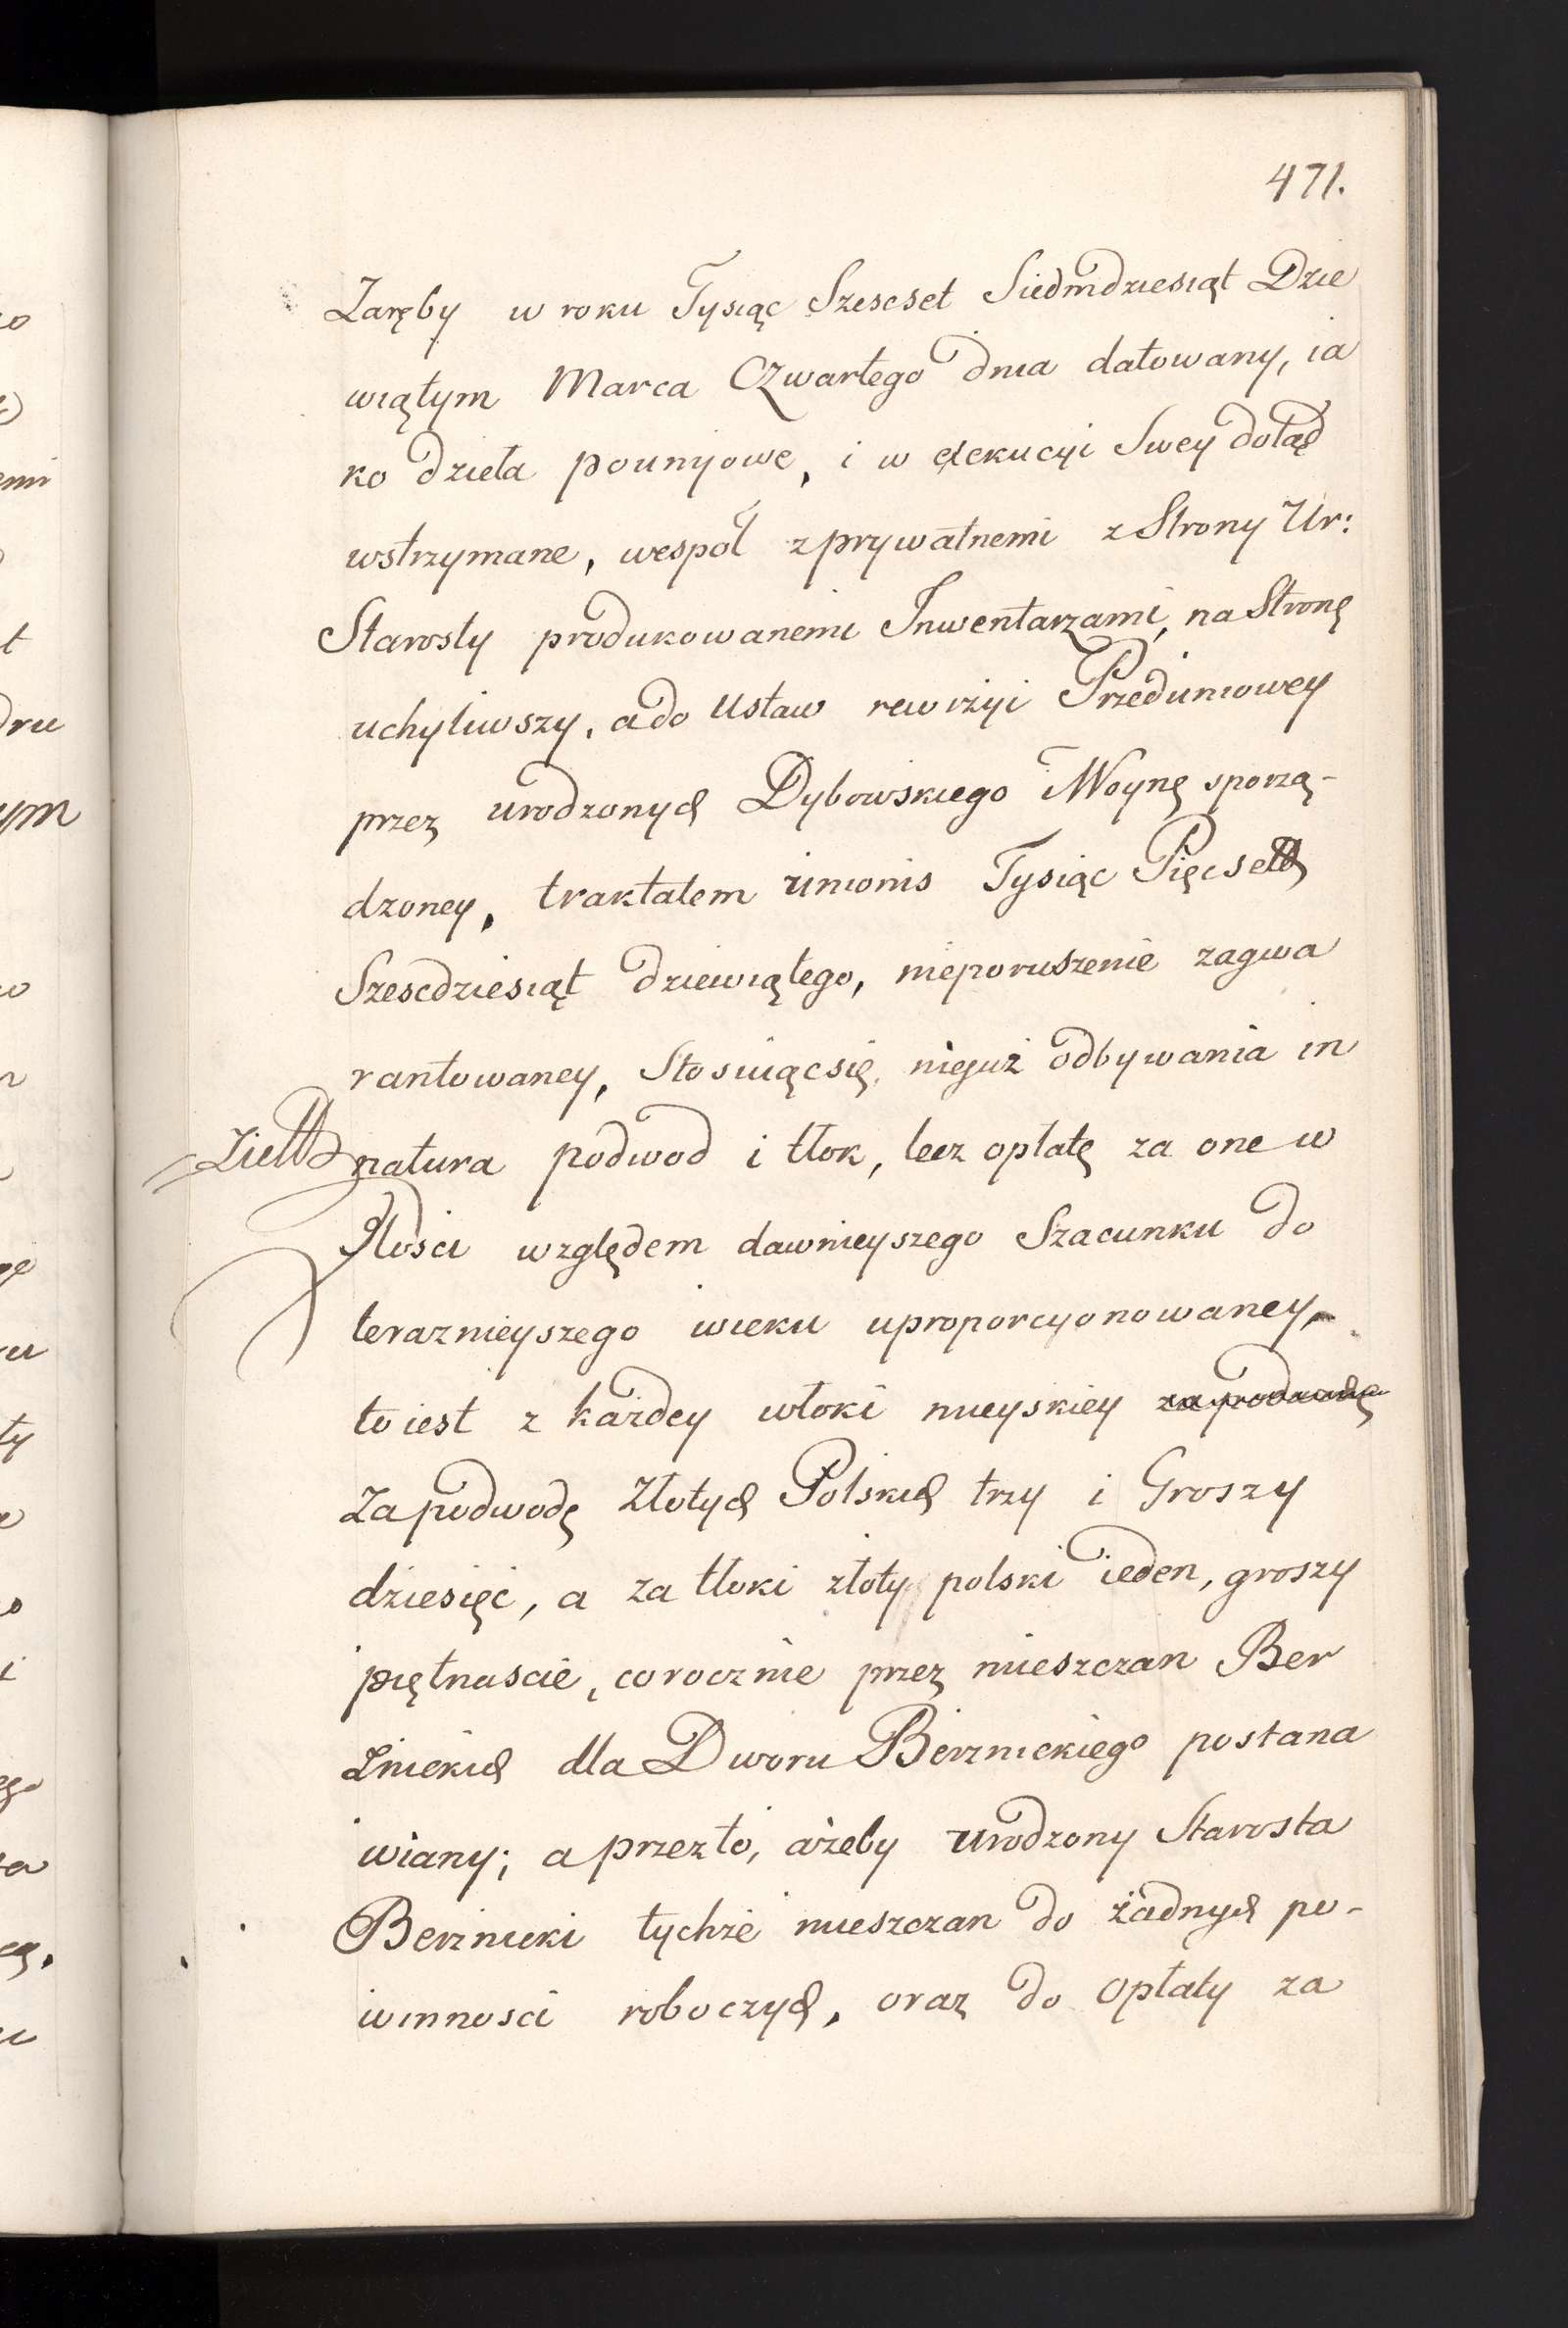 471.
Zaręby w roku Tysiąc Szescset Siedmdziesiąt Dzie
wiątym Marca Czwartego dnia datowany, ia
ko dzieła pounijowe, i w exekucyi Swey dotąd
wstrzymane, wespoł z prywatnemi z Strony Ur:
Starosty produkowanemi Inwentarzami, na Stronę
uchyliwszy, a do Ustaw rewizyi Przeduniowey
przez urodzonych Dybowskiego i Woynę sporzą-
dzoney, traktatem unionis Tysiąc Pięcset
Szescdziesiąt dziewiątego, nieporuszenie zagwa
rantowaney, Stosuiąc się, nie iuż odbywania in
natura podwod i tłok, lecz opłatę za one w
Ilosci względem dawnieyszego Szacunku do
teraznieyszego wieku uproporcyonowaney,
to iest z każdey włoki mieyskiey
Za podwodę Złotych Polskich trzy i Groszy
dziesięć, a za tłoki złoty polski ieden, groszy
piętnascie, corocznie przez mieszczan Ber
żnickich dla Dworu Berznickiego postana
wiany; a przez to, ażeby urodzony Starosta
Berżnicki tychże mieszczan do żadnych po-
winnosci roboczych, oraz do Opłaty za